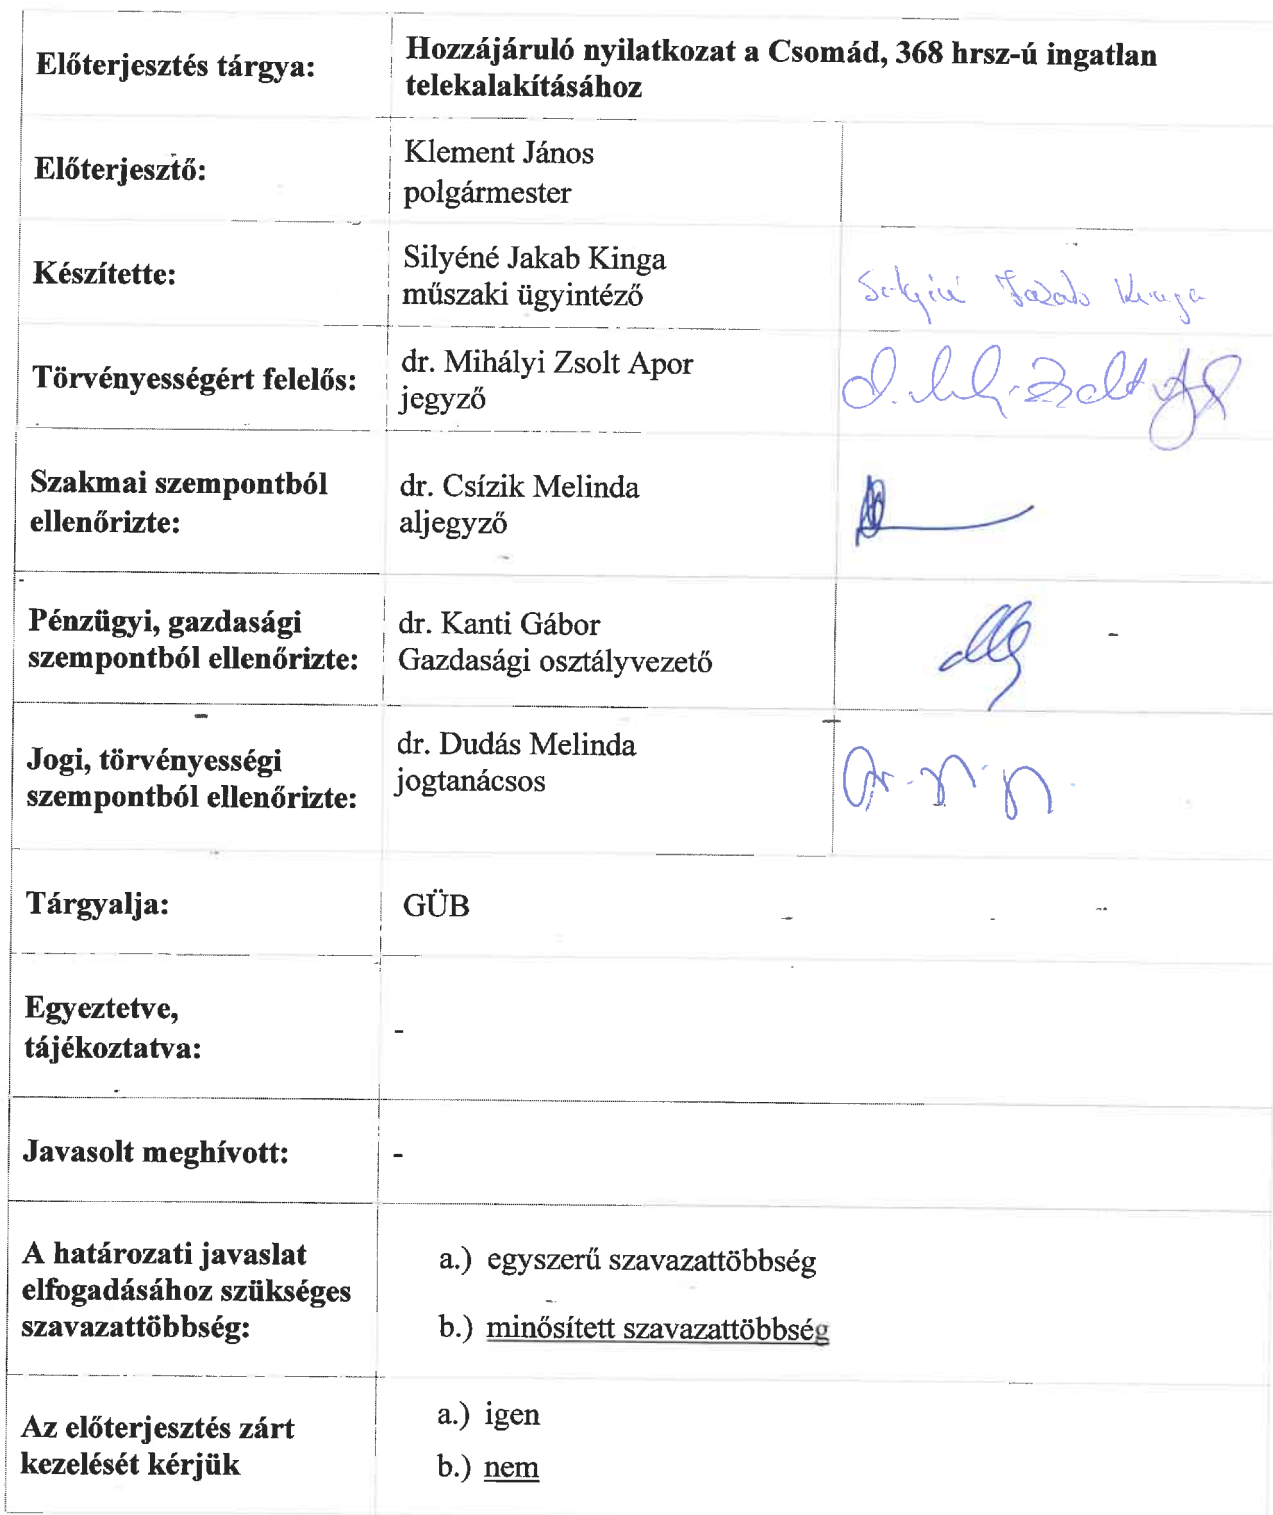 Előterjesztés tárgya:
Hozzájáruló nyilatkozat a Csomád, 368 hrsz-ú ingatlan
telekalakításához
Előterjesztő:
Klement János
polgármester
Készítette:
Silyéné Jakab Kinga
műszaki ügyintéző
Silyéné Jakab Kinga
Törvényességért felelős:
dr. Mihályi Zsolt Apor
jegyző
Szakmai szempontból
ellenőrizte:
dr. Csízik Melinda
aljegyző
Pénzügyi, gazdasági
szempontból ellenőrizte:
dr. Kanti Gábor
Gazdasági osztályvezető
Jogi, törvényességi
szempontból ellenőrizte:
dr. Dudás Melinda
jogtanácsos
Tárgyalja:
GÜB
Egyeztetve,
tájékoztatva:
-
Javasolt meghívott:
-
A határozati javaslat
elfogadásához szükséges
szavazattöbbség:
a.) egyszerű szavazattöbbség
b.) minősített szavazattöbbség
Az előterjesztés zárt
kezelését kérjük
a.) igen
b.) nem